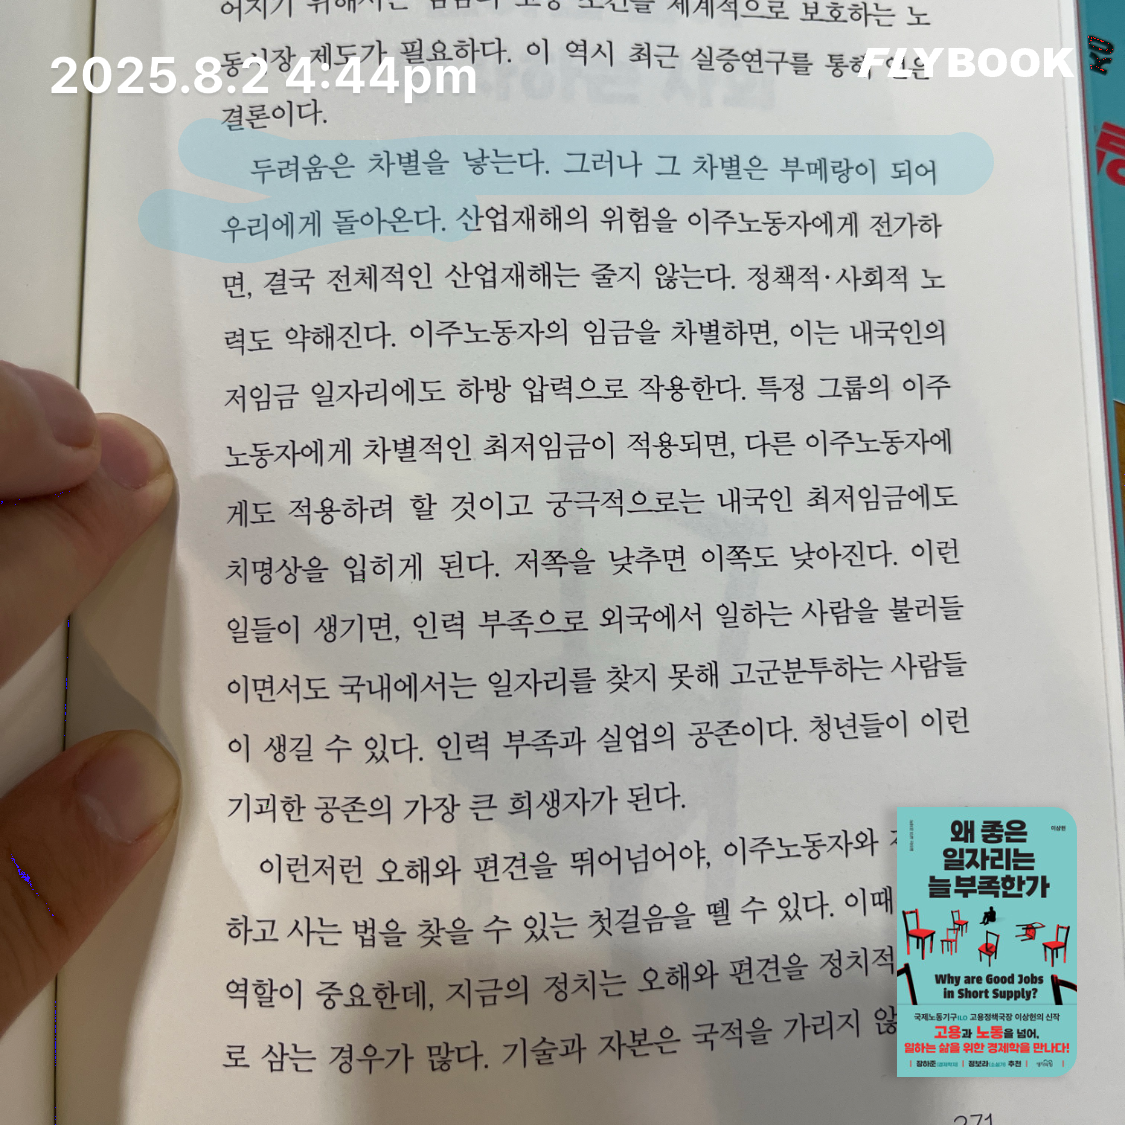 어지기 위해서는 임금과 고용 조건을 체계적으로 보호하는 노
동시장 제도가 필요하다. 이 역시 최근 실증연구를 통해 얻은
2025.8.2 4:44pm
FLYBOOK
결론이다.
두려움은 차별을 낳는다. 그러나 그 차별은 부메랑이 되어
우리에게 돌아온다. 산업재해의 위험을 이주노동자에게 전가하
면, 결국 전체적인 산업재해는 줄지 않는다. 정책적·사회적 노
력도 약해진다. 이주노동자의 임금을 차별하면, 이는 내국인의
저임금 일자리에도 하방 압력으로 작용한다. 특정 그룹의 이주
노동자에게 차별적인 최저임금이 적용되면, 다른 이주노동자에
게도 적용하려 할 것이고 궁극적으로는 내국인 최저임금에도
치명상을 입히게 된다. 저쪽을 낮추면 이쪽도 낮아진다. 이런
일들이 생기면, 인력 부족으로 외국에서 일하는 사람을 불러들
이면서도 국내에서는 일자리를 찾지 못해 고군분투하는 사람들
이 생길 수 있다. 인력 부족과 실업의 공존이다. 청년들이 이런
기괴한 공존의 가장 큰 희생자가 된다.
이런저런 오해와 편견을 뛰어넘어야, 이주노동자와
하고 사는 법을 찾을 수 있는 첫걸음을 뗄 수 있다. 이때
역할이 중요한데, 지금의 정치는 오해와 편견을 정치적
로 삼는 경우가 많다. 기술과 자본은 국적을 가리지 않
271
왜 좋은
일자리는
늘 부족한가
이상헌
Why are Good Jobs
in Short Supply?
국제노동기구ILO 고용정책국장 이상헌의 신작
고용과 노동을 넘어,
일하는 삶을 위한 경제학을 만나다!
장하준 정보라 추천